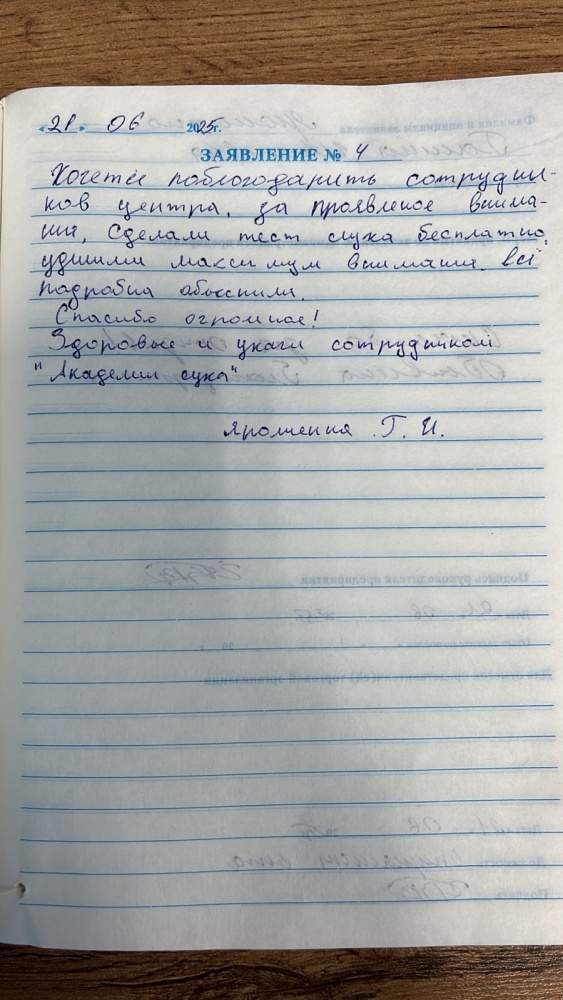 «21» 06 2025г.
ЗАЯВЛЕНИЕ № 4
Хочеться поблогодарить сотрудни-
ков центра, за проявленое внима-
ния, Сделали тест слуха бесплатно,
удилили максимум внимания. Всё
подробна объяснили.
Спасибо огромное!
Здоровья и удачи сотрудником
"Академии слуха"
Ярошенка Г. И.
Подпись руководителя предприятия